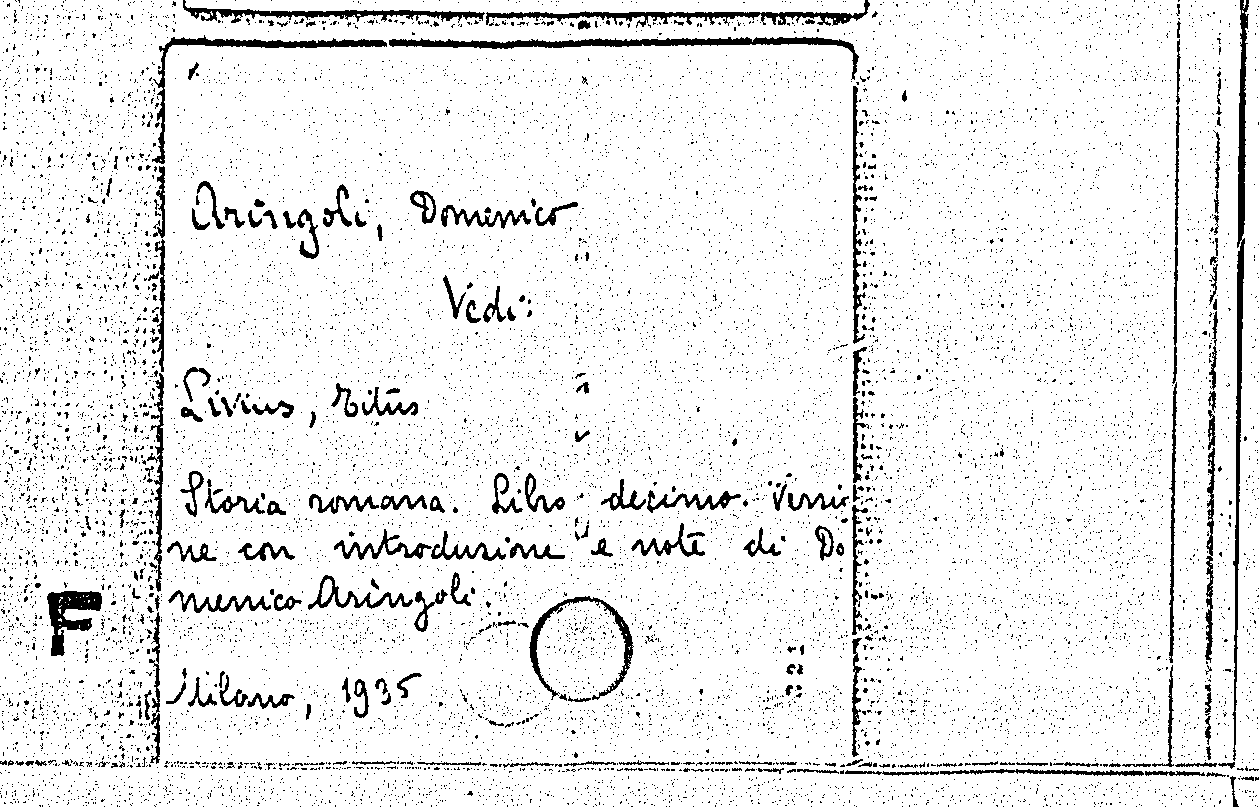 Aringoli, Domenico
Vedi:
Livius, Titus
Storia romana. Libro decimo. Versio
ne con introduzione e note di Do
menico Aringoli.
F
321
Milano, 1935